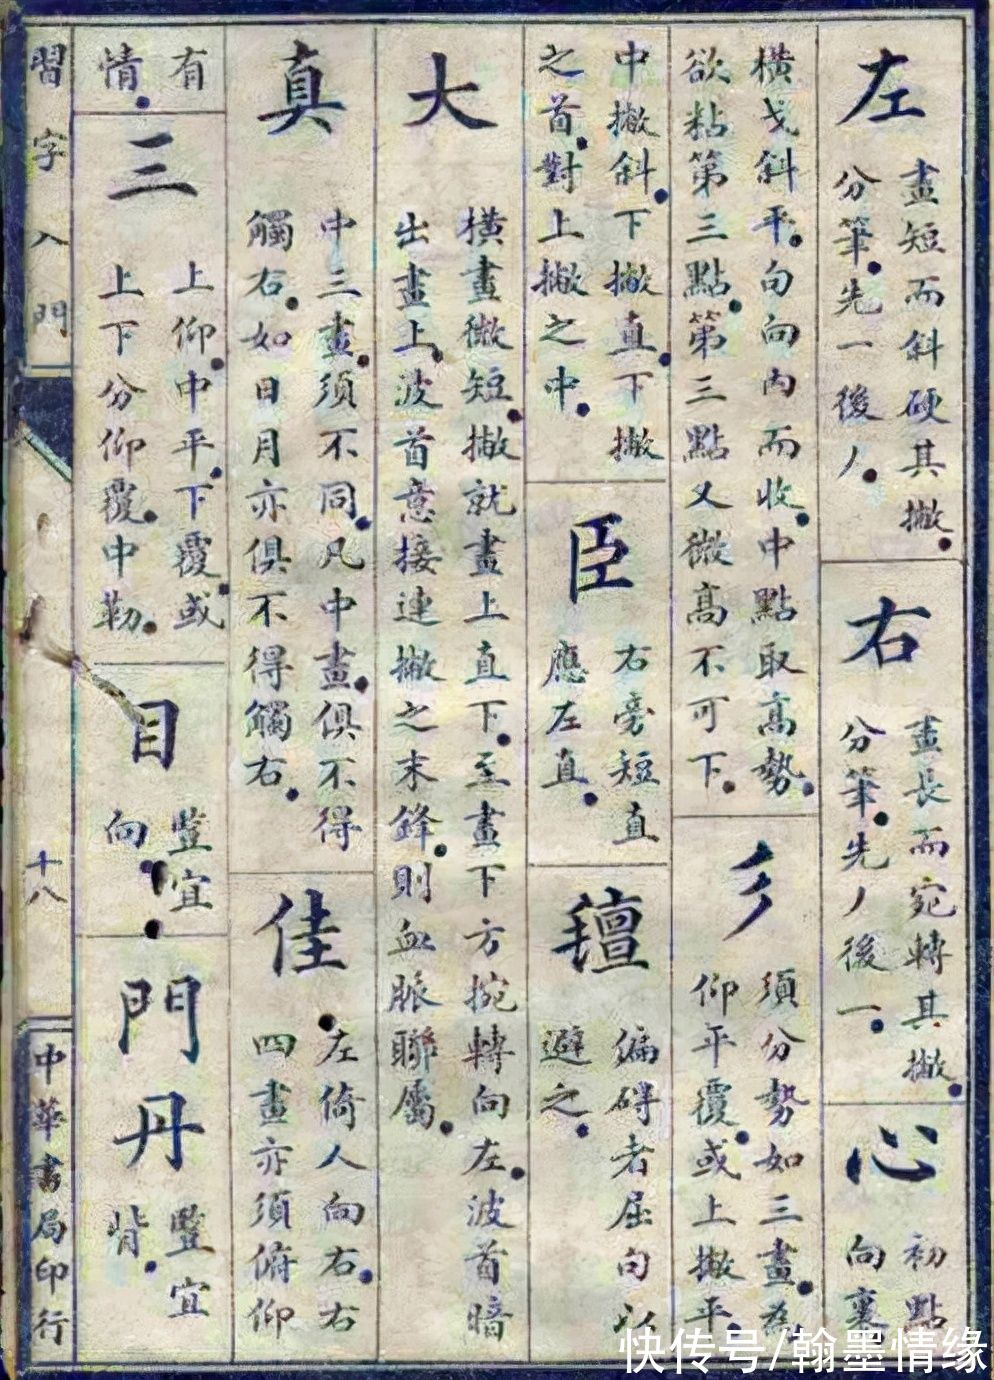 左
畫短而斜硬其撇
分筆先一後丿
右
畫長而宛轉其撇
分筆先丿後一
心
初點向裏
橫戈斜平句向內而收中點取高勢
欲粘第三點第三點又微高不可下
彡
須分勢如三畫為
仰平覆或上撇平
中撇斜下撇直下撇
之首對上撇之中
臣
右旁短直
應左直
氊
偏碍者屈句以
避之
大
橫畫微短撇就畫上直下至畫下方捥轉向左波首暗
出畫上波首意接連撇之末鋒則血脈聯屬
真
中三畫須不同凡中畫俱不得
觸右如日月亦俱不得觸右
佳
左倚人向右右
四畫亦須俯仰
有
情
三
上仰中平下覆或
上下分仰覆中勒
目
豎宜
向
門丹
豎宜
背
習字入門
十八
中華書局印行
快传号/翰墨情缘